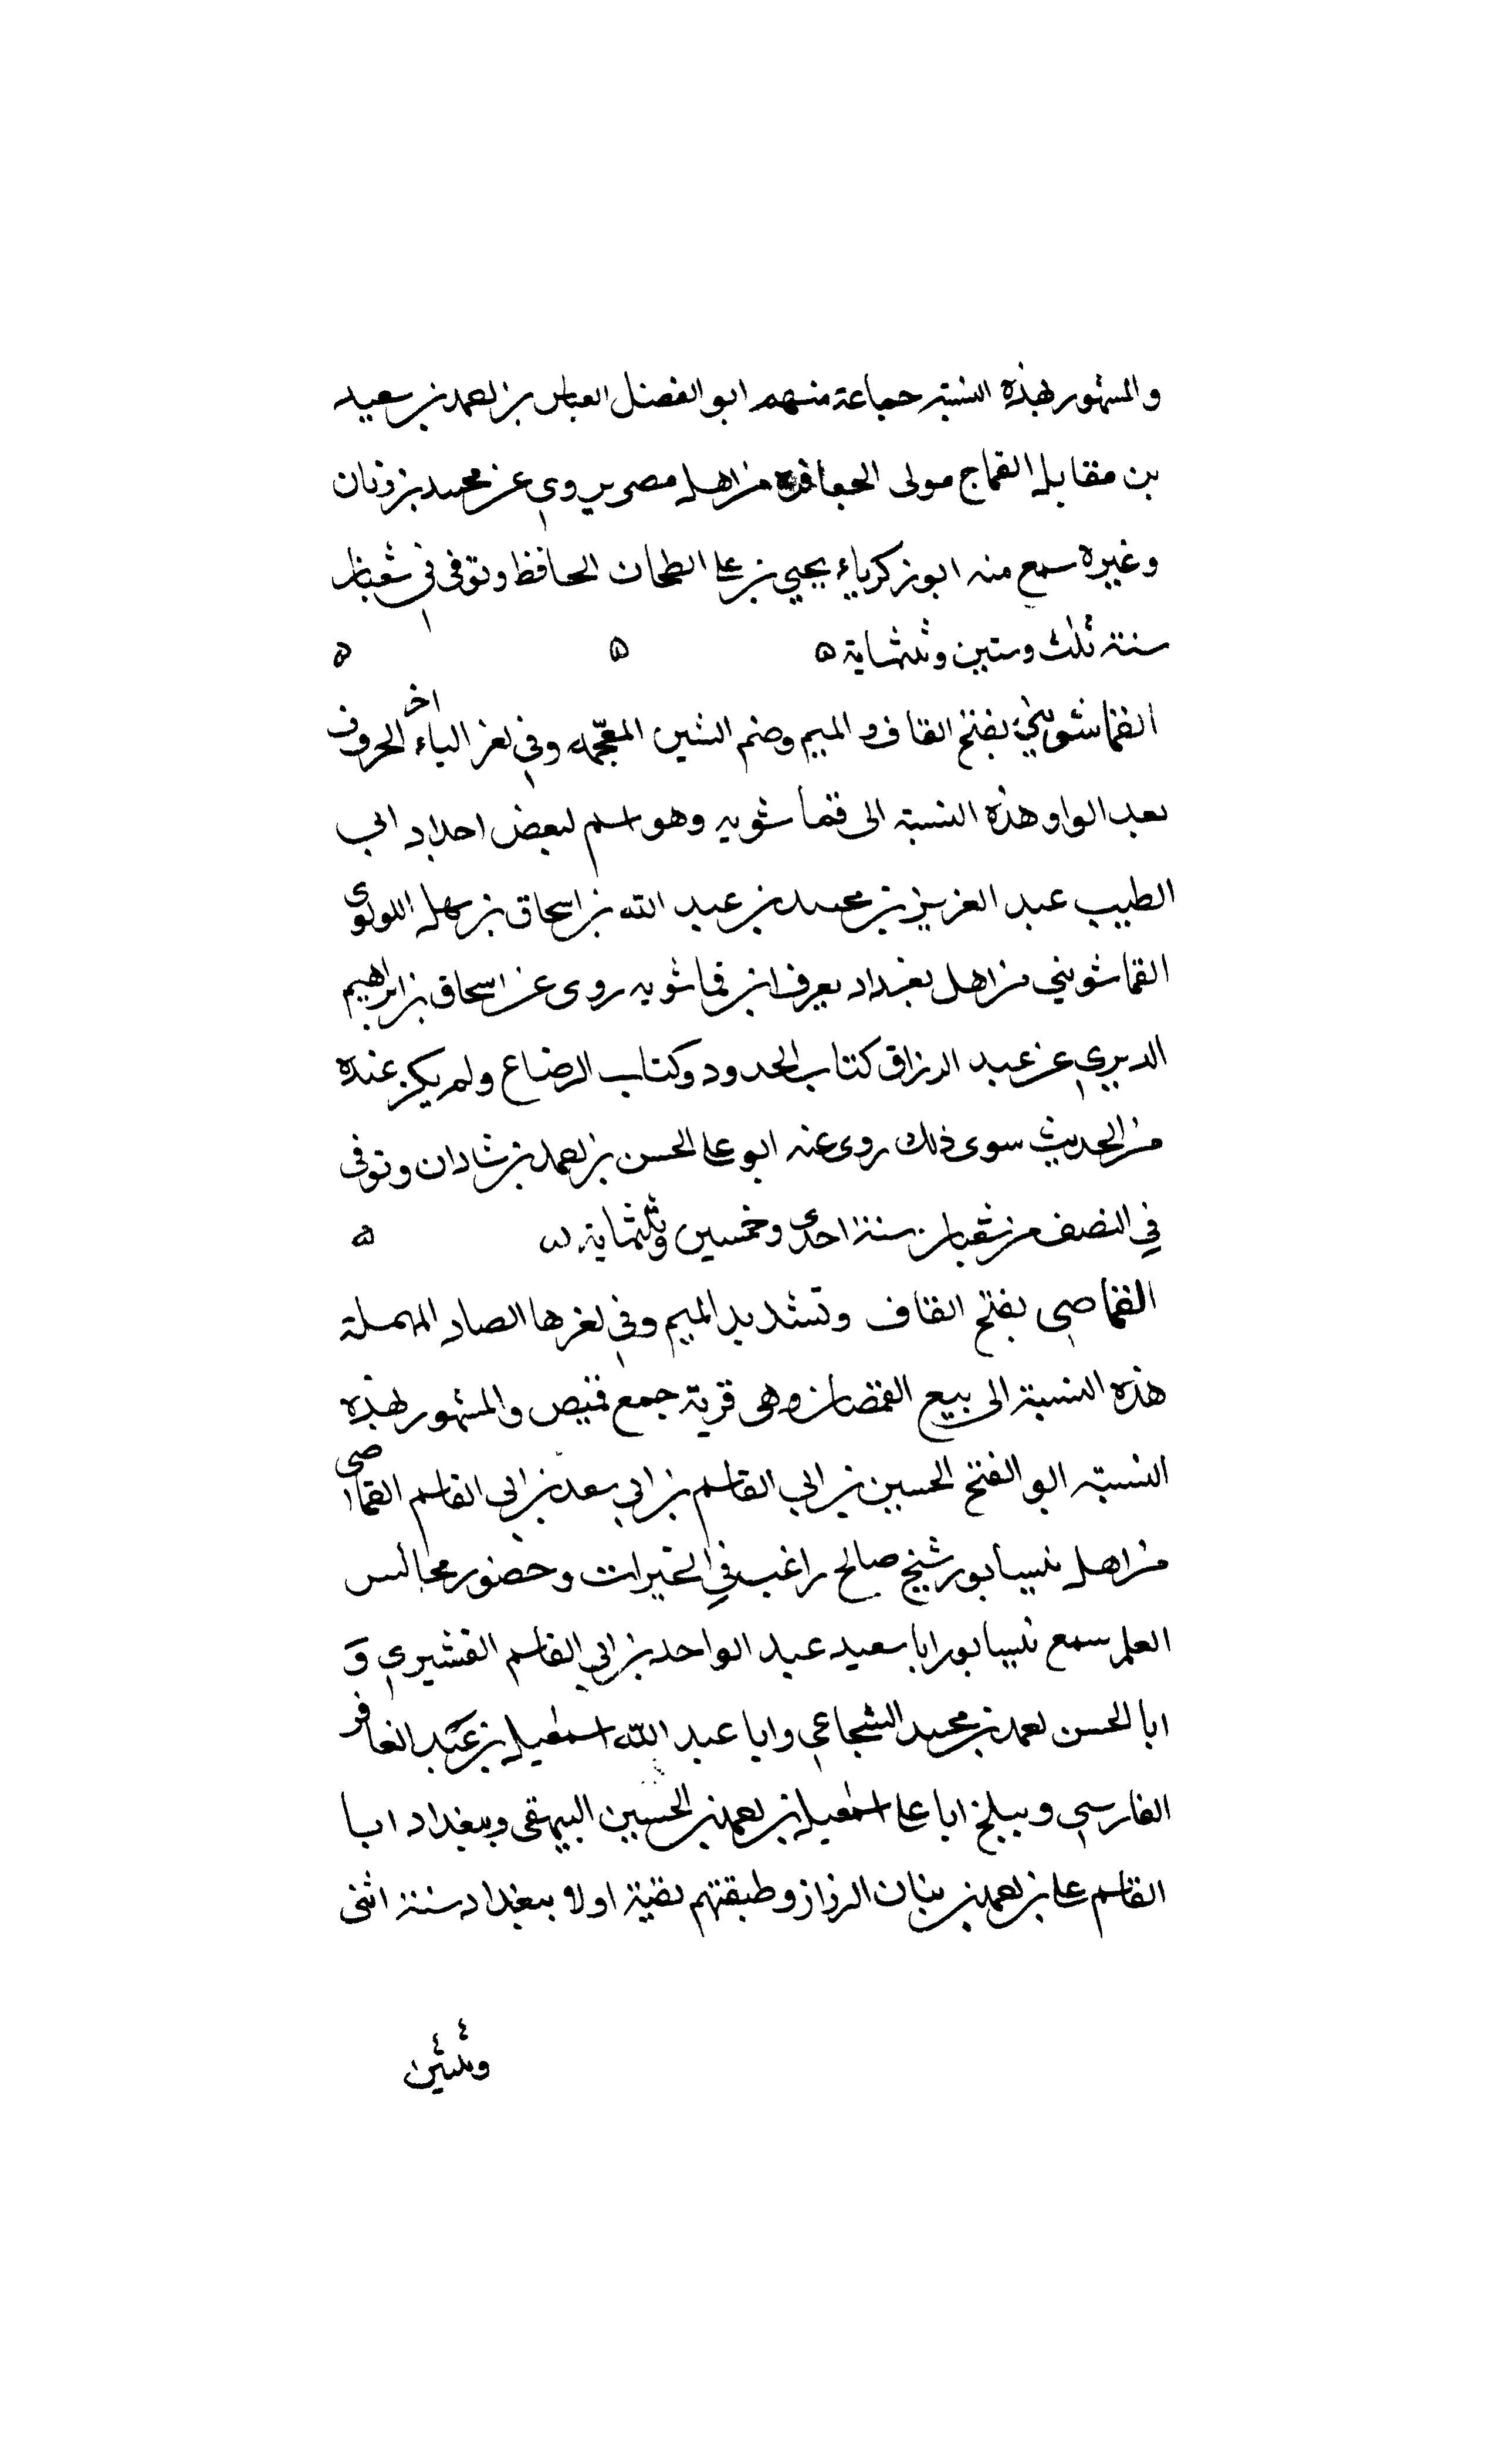 والمشهور بهذه النسبة جماعة منهم ابو الفضل العباس بن احمد بن سعيد
بن مقاتل القماح مولى المعافره من اهل مصر يروى عن محمد بن زبان
وغيره سمع منه ابو زكرياء يحيى بن على الطحان الحافظ وتوفى فى شعبان
سنة ثلث وستين وثلثماية ۵ ۵ ۵
القماشويي بفتح القاف والميم وضم الشين المعجمه وفى اخرها الياء اخر الحروف
بعد الواو هذه النسبة الى قماشويه وهو اسم لبعض اجداد ابى
الطيب عبد العزيز بن محمد بن عبد الله بن اسحاق بن سهل اللولوى
القماشويي من اهل بغداد يعرف ابن قماشويه روى عن اسحاق بن ابراهيم
الدبري عن عبد الرزاق كتاب الحدود وكتاب الرضاع ولم يكن عنده
من الحديث سوى ذلك روى عنه ابو على الحسن بن احمد بن شاذان وتوفى
فى النصف من شعبان سنة احدى وخمسين وثلثماية ۵
القماصى بفتح القاف وتشديد الميم وفى اخرها الصاد المهملة
هذه النسبة الى بيع القمصان وهى قرية جمع قميص والمشهور بهذه
النسبة ابو الفتح الحسين بن ابى القاسم بن ابى سعد بن ابى القاسم القماصى
من اهل نيسابور شيخ صالح راغب فى الخيرات وحضور مجالس
العلم سمع نيسابور ابا سعيد عبد الواحد بن ابى القاسم القشيرى و
ابا الحسن احمد بن محمد الشجاعى وابا عبد الله اسمعيل بن عبد الغافر
الفارسى وببلخ ابا على اسمعيل بن احمد بن الحسين البيهقى وببغداد ابا
القاسم على بن احمد بن بنان الرزاز وطبقتهم لقيته اولا ببغداد سنة اثنى
وثلثين